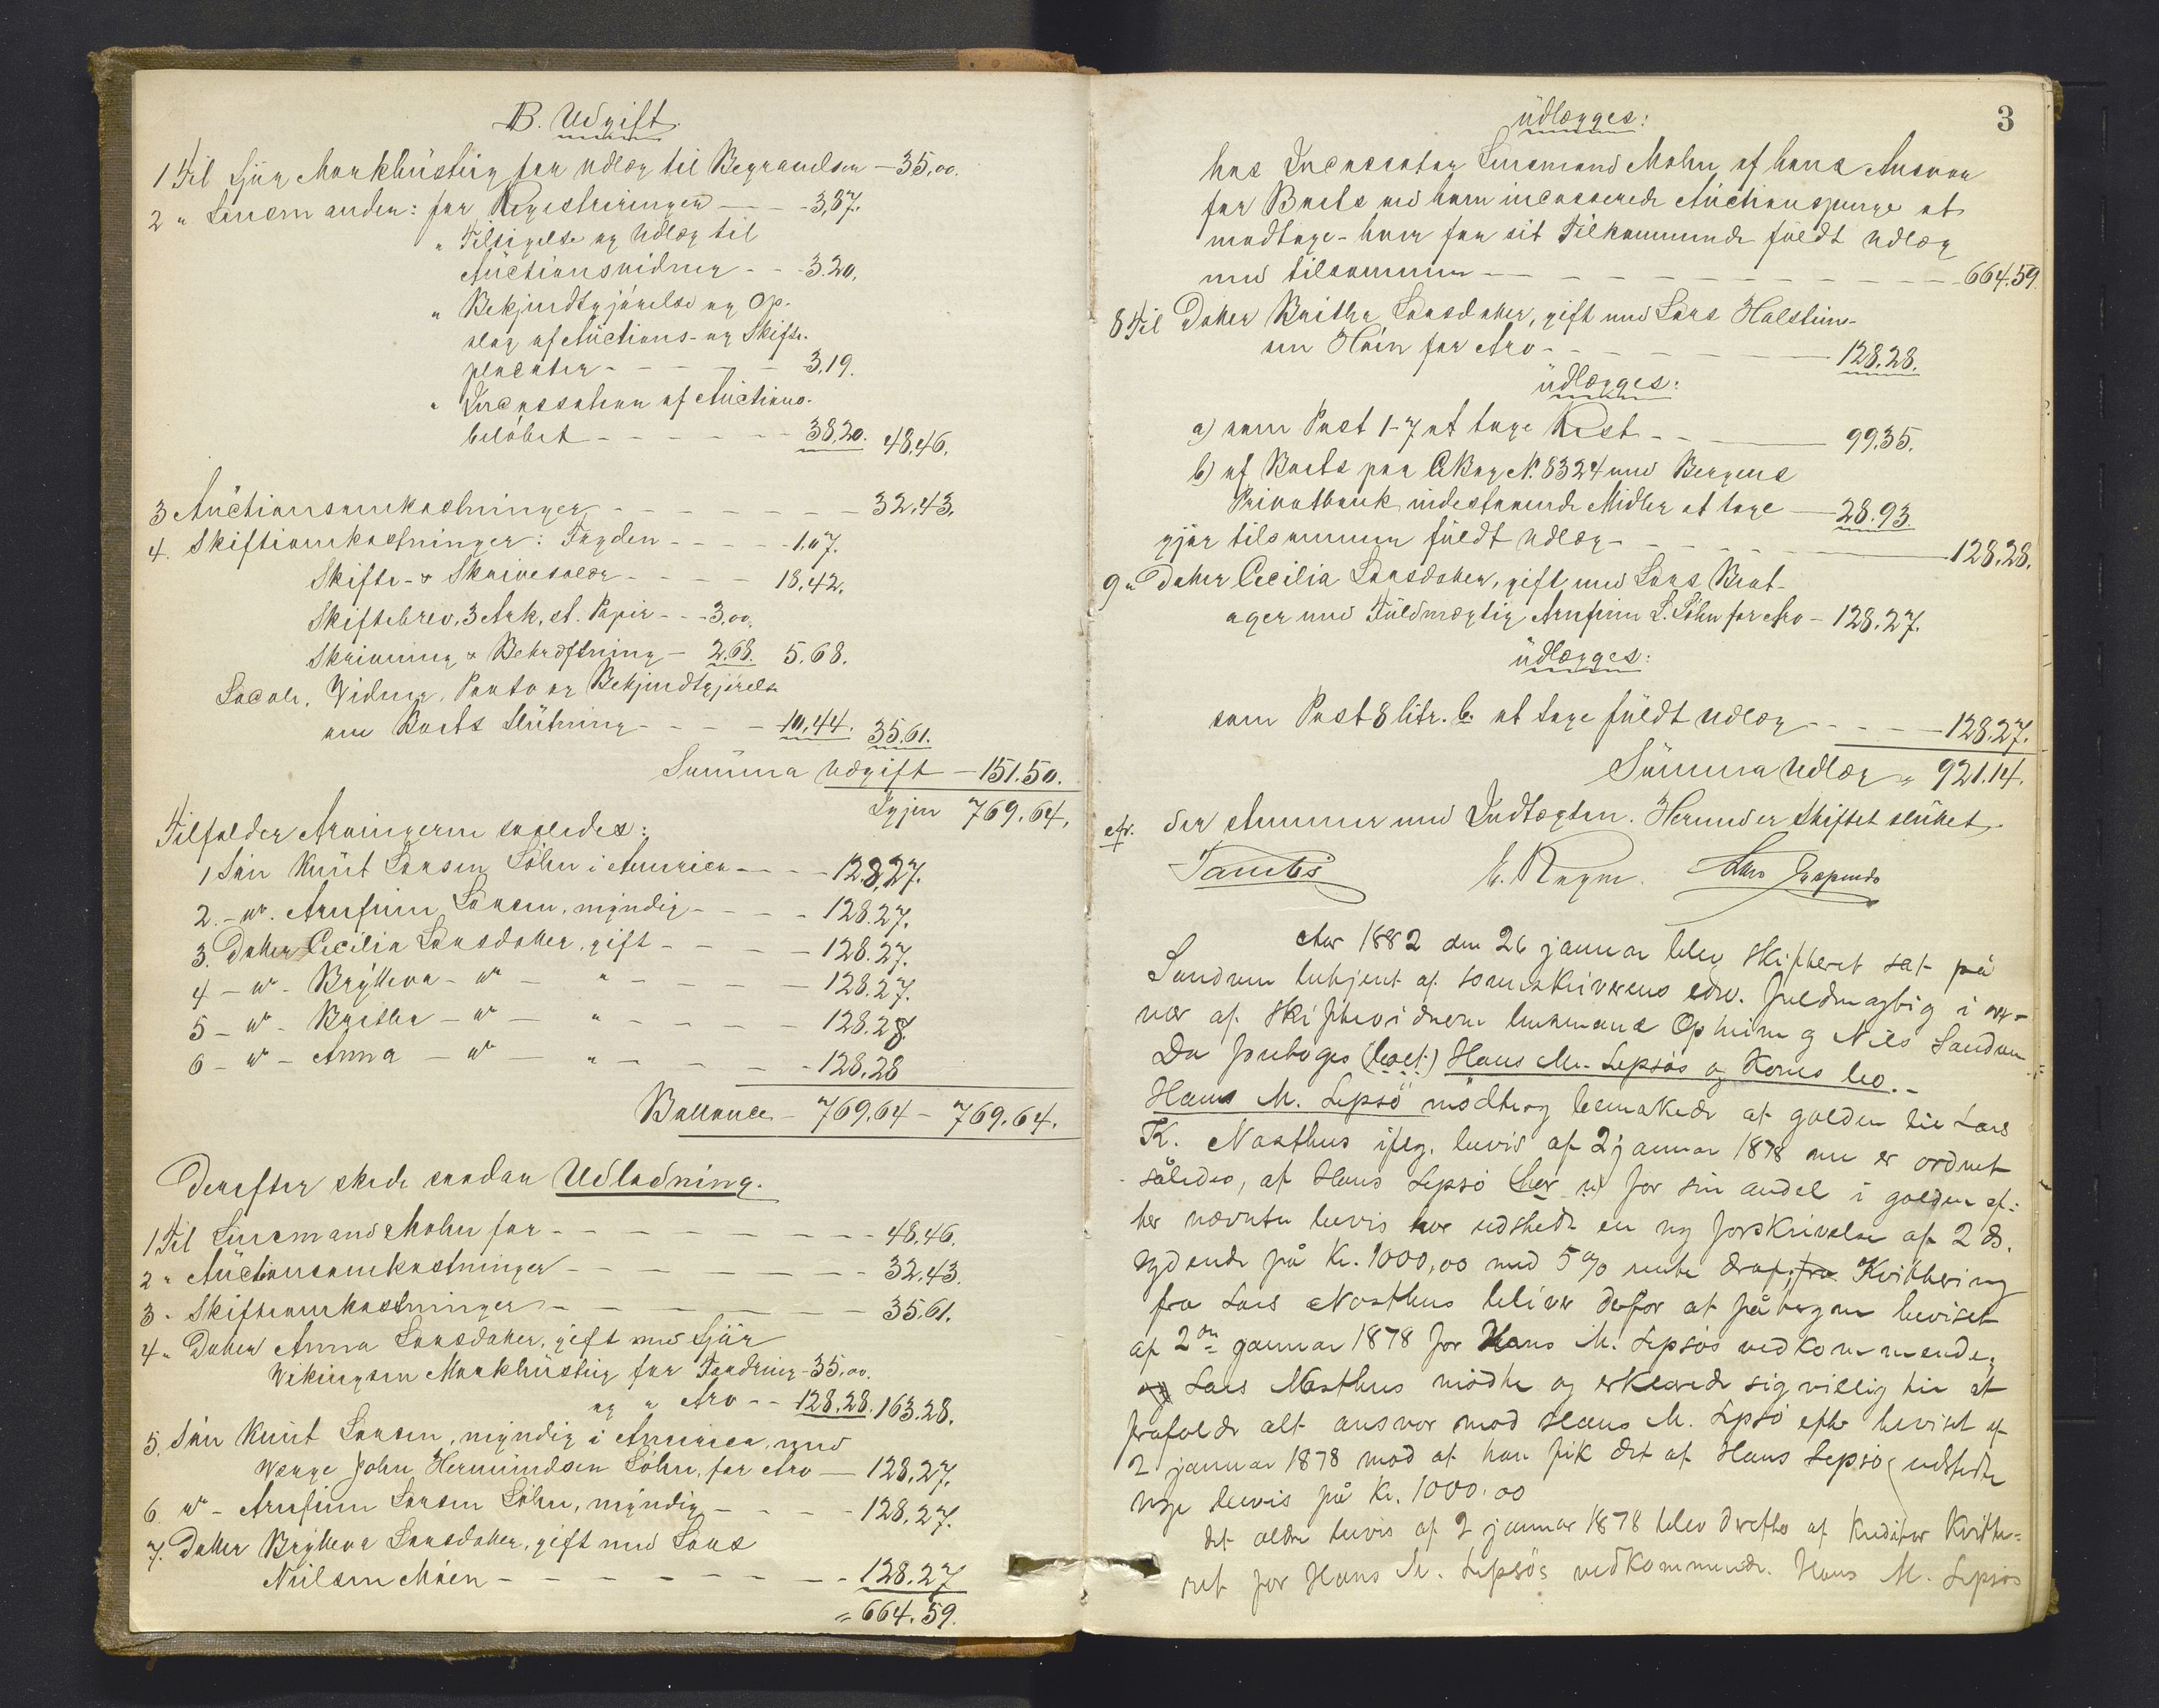 B. Udgift.
1 Til Sjur Markhüsteig for Udlæg til Begravelsen - 35,00.
2 " Lensmanden: for Registreringen - - 3,87.
" Tilsigelse og Udlæg til
Auctionsvidner - - 3.20,
" Bekjendtgjörelse og Op-
slag af Auctions- og Skifte-
placater - - - - 3,19.
" Incassation af Auctions-
belöbet - - - - - 38,20. 48,46.
3 Auctionsomkostninger - - - - - - 32,43,
4. Skifteomkostninger: Fogden - - - - 1,07.
Skifte- & Skrivesalær - - - - 18,42,
Skiftebrev, 3 Ark, st. Papir - - 3,00.
Skrivning & Bekræftning - 2.68. 5.68.
Locale, Vidner, Porto og Bekjendtgjörelse
om Boets Slutning - - - - 10,44. 35.61.
Summa Udgift - 151.50.
Igjen 769.64,
Tilfalder Arvingerne saaledes:
1 Sön Knüt Larsen Löhn i America - - - 128,27.
2. - do. Arnfinn Larsen, myndig - - - 128.27.
3. Datter Cecilia Larsdatter, gift - - - 128.27.
4 - do - Brytteva - do - " - - - - 128.27.
5 - do - Britha - do - " - - - - 128.28.
6 - do - Anna - do - " - - - - 128.28
Ballance - 769,64 - 769.64.
Derefter skede saadan Udlodning.
1 Til Lensmand Mohn for - - - - - - - 48,46.
2 " Auctionsomkostninger - - - - - - 32.43.
3 " Skifteomkostninger - - - - - - 35.61.
4 " Datter Anna Larsdatter, gift med Sjür
Vikingsen Markhüsteig for Fordring - 35,00.
og " Arv - - 128.28. 163.28.
5. Sön Knüt Larsen, myndig i America, med
Værge John Hermündsen Löhn, for Arv - 128,27.
6. do - Arnfinn Larsen Löhn, myndig - - - 128,27.
7. Datter Brytteva Larsdatter, gift med Lars
Nielsen Möen - - - - - - - 128.27
= 664,59.
3
üdlægges:
hos Incassator Lensmand Mohn af hans Ansvar
for Boets ved ham incasserede Auctionspenge at
modtage - hver for sit Tilkommende füldt Udlæg
med tilsammen - - - - - - - - - 664.59
8 Til Datter Britha Larsdatter, gift med Lars Halstein-
sen Hóin for Arv - - - - - - - 128.28.
üdlægges:
a) som Post 1-7 at tage Rest - - - 99.35.
b) af Boets paa CBog No. 8324 med Bergens
Privatbank indestaaende Midler at tage - 28.93.
gjör tilsammen füldt Udlæg - - - - - 128.28.
9 " Datter Cecilia Larsdatter, gift med Lars Brat-
ager med Füldmægtig Arnfinn L. Löhn for Arv - 128.27.
üdlægges:
som Post 8 litr. b. at tage füldt Udlæg - - - 128.27.
Summa Udlæg = 921.14.
der stemmer med Indtægten. Hermed er Skiftet slüttet.
Tambs
Aar 1882 den 26 januar blev skifteret sat på
Sandven betjent af sorenskriverens edsv. fuldmægtig i over-
vær af skiftevidnerne lensmand Opheim og Nils Sandven
Da foretoges Hans M. Lepsøs og Kones bo. -
Hans M. Lepsø mødte og bemærkede at gjælden til Lars
K. Nasthus ifølg. bevis af 2 januar 1878 nu er ordnet
således, at Hans Lepsø har for sin andel i gjælden ef-
ter nævnte bevis har udstedt en ny forskrivelse af 2 ds.
lydende på Kr. 1000,00 med 5 % rente deraf; fra Kvittering
fra Lars Nasthus bliver derfor at påtegne beviset
af 2den januar 1878 for Hans M. Lepsøs vedkommende.
og Lars Nasthus mødte og erklærede sig villig til at
frafalde alt ansvar mod Hans M. Lepsø efter beviset af
2 januar 1878 mod at han fik det af Hans Lepsø udstedte
nye bevis på Kr. 1000.00
det ældre bevis af 2 januar 1878 blev derefter af Kreditor Kvitte-
ret for Hans M. Lepsøs vedkommende. Hans M. Lepsøs